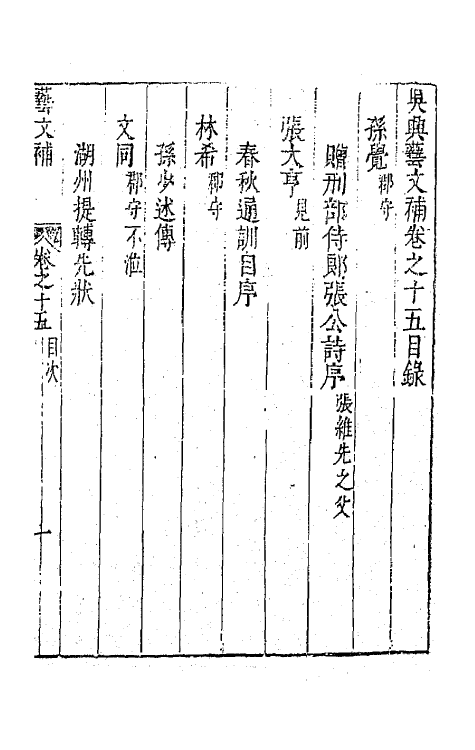 吳興藝文補卷之十五目錄
孫覺郡守
贈刑部侍郎張公詩序張維先之父
張大亨見前
春秋通訓自序
林希郡守
孫少述傳
文同郡守不涖
湖州提轉先狀
藝文補 卷之十五 目次 一